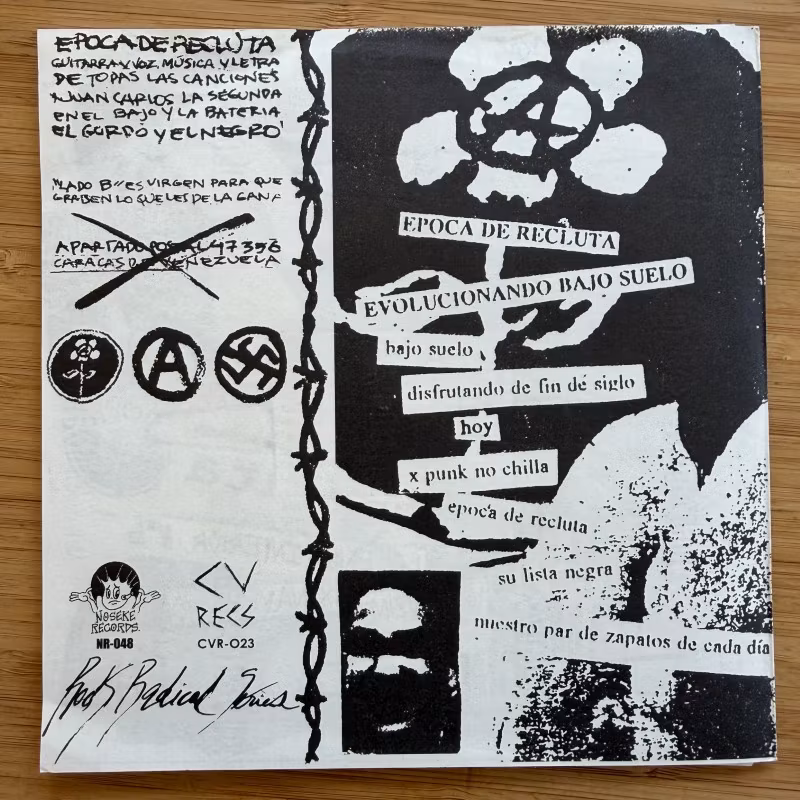 EPOCA DE RECLUTA
GUITARRA Y VOZ, MÚSICA Y LETRA
DE TODAS LAS CANCIONES
JUAN CARLOS LA SEGUNDA
EN EL BAJO Y LA BATERIA
EL GORDO Y EL NEGRO
"LADO B" ES VIRGEN PARA QUE
GRABEN LO QUE LES DE LA GANA
APARTADO POSTAL 47356
CARACAS DE VENEZUELA
A
NOSEKE
RECORDS.
NR-048
CV
RECS
CVR-023
Rock Radical Series
A
EPOCA DE RECLUTA
EVOLUCIONANDO BAJO SUELO
bajo suelo
disfrutando de fin de siglo
hoy
x punk no chilla
epoca de recluta
su lista negra
nuestro par de zapatos de cada día